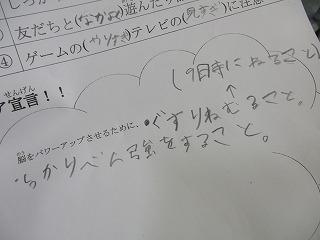 友だちと(なかよく)遊んだり
④ ゲームの(やりすぎ)テレビの(見すぎ)に注意
ア宣言!!
せんげん
(9時にねること)
脳をパワーアップさせるために、・ぐすりねむること。
のう
っかりべん強をすること。